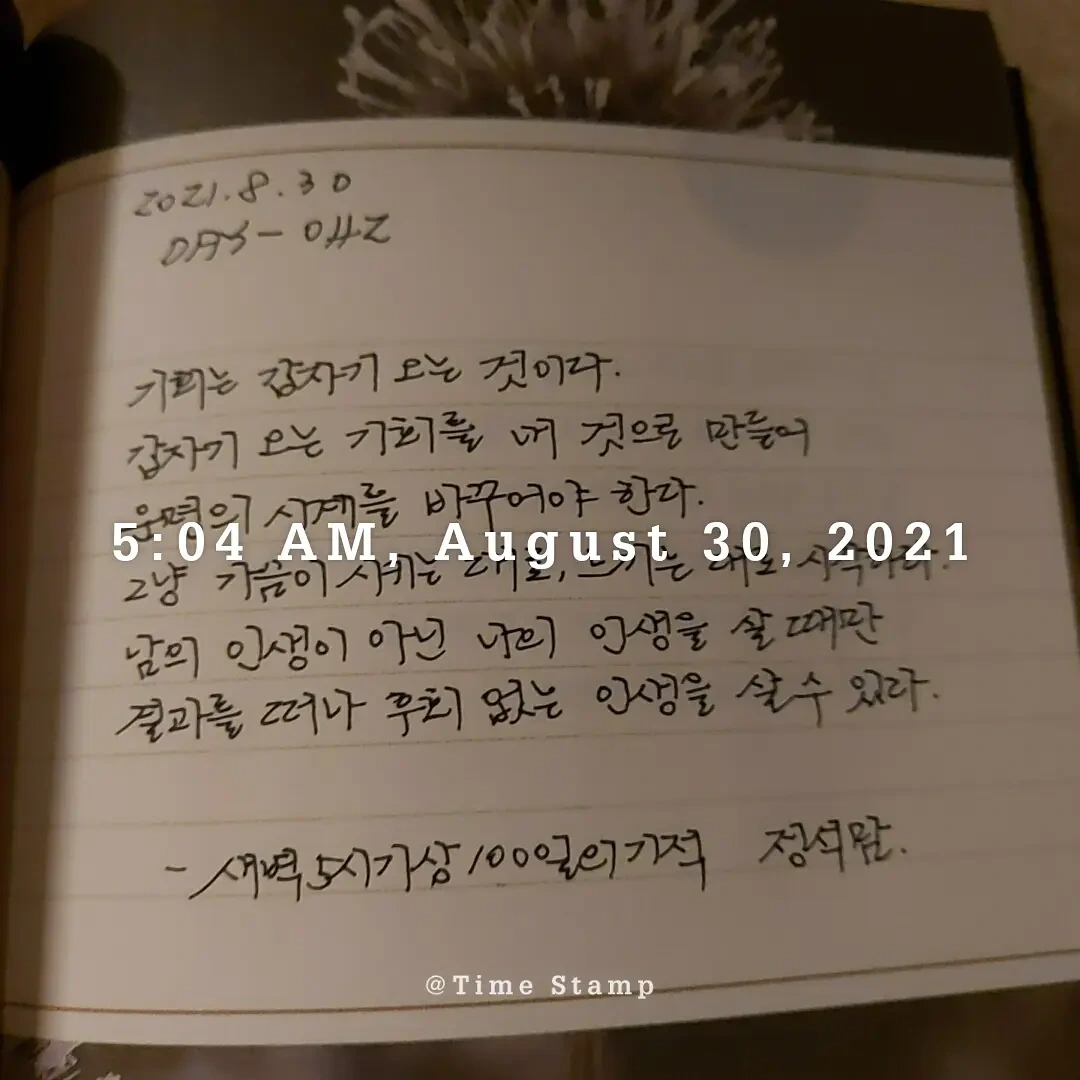 2021.8.30
DAY - 042
기회는 갑자기 오는 것이다.
갑자기 오는 기회를 내 것으로 만들어
운명의 시계를 바꾸어야 한다.
5:04 AM, August 30, 2021
그냥 가슴이 시키는 대로, 느끼는 대로 시작하라.
남의 인생이 아닌 나의 인생을 살 때만
결과를 떠나 후회 없는 인생을 살 수 있다.
- 새벽 5시 기상 100일의 기적
@Time Stamp